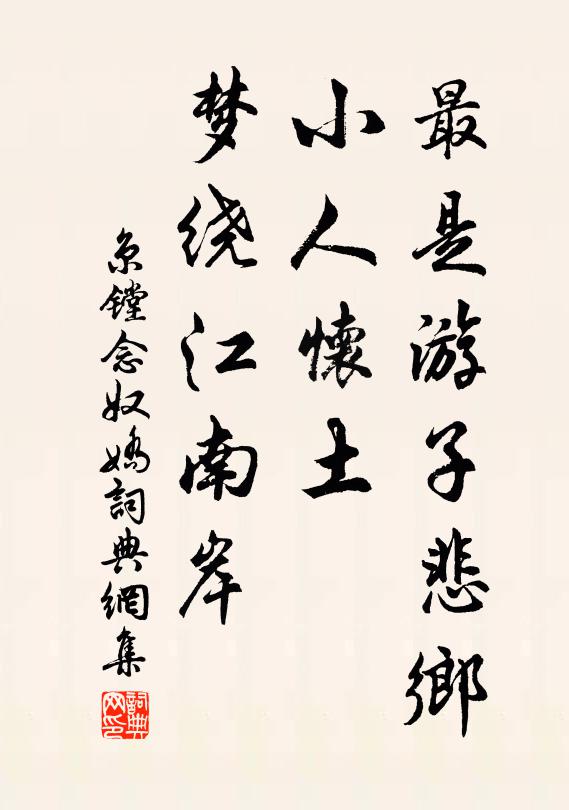 最是游子悲鄉
小人懷土
梦绕江南岸
京镗念奴嬌詞典網集
詞典网印